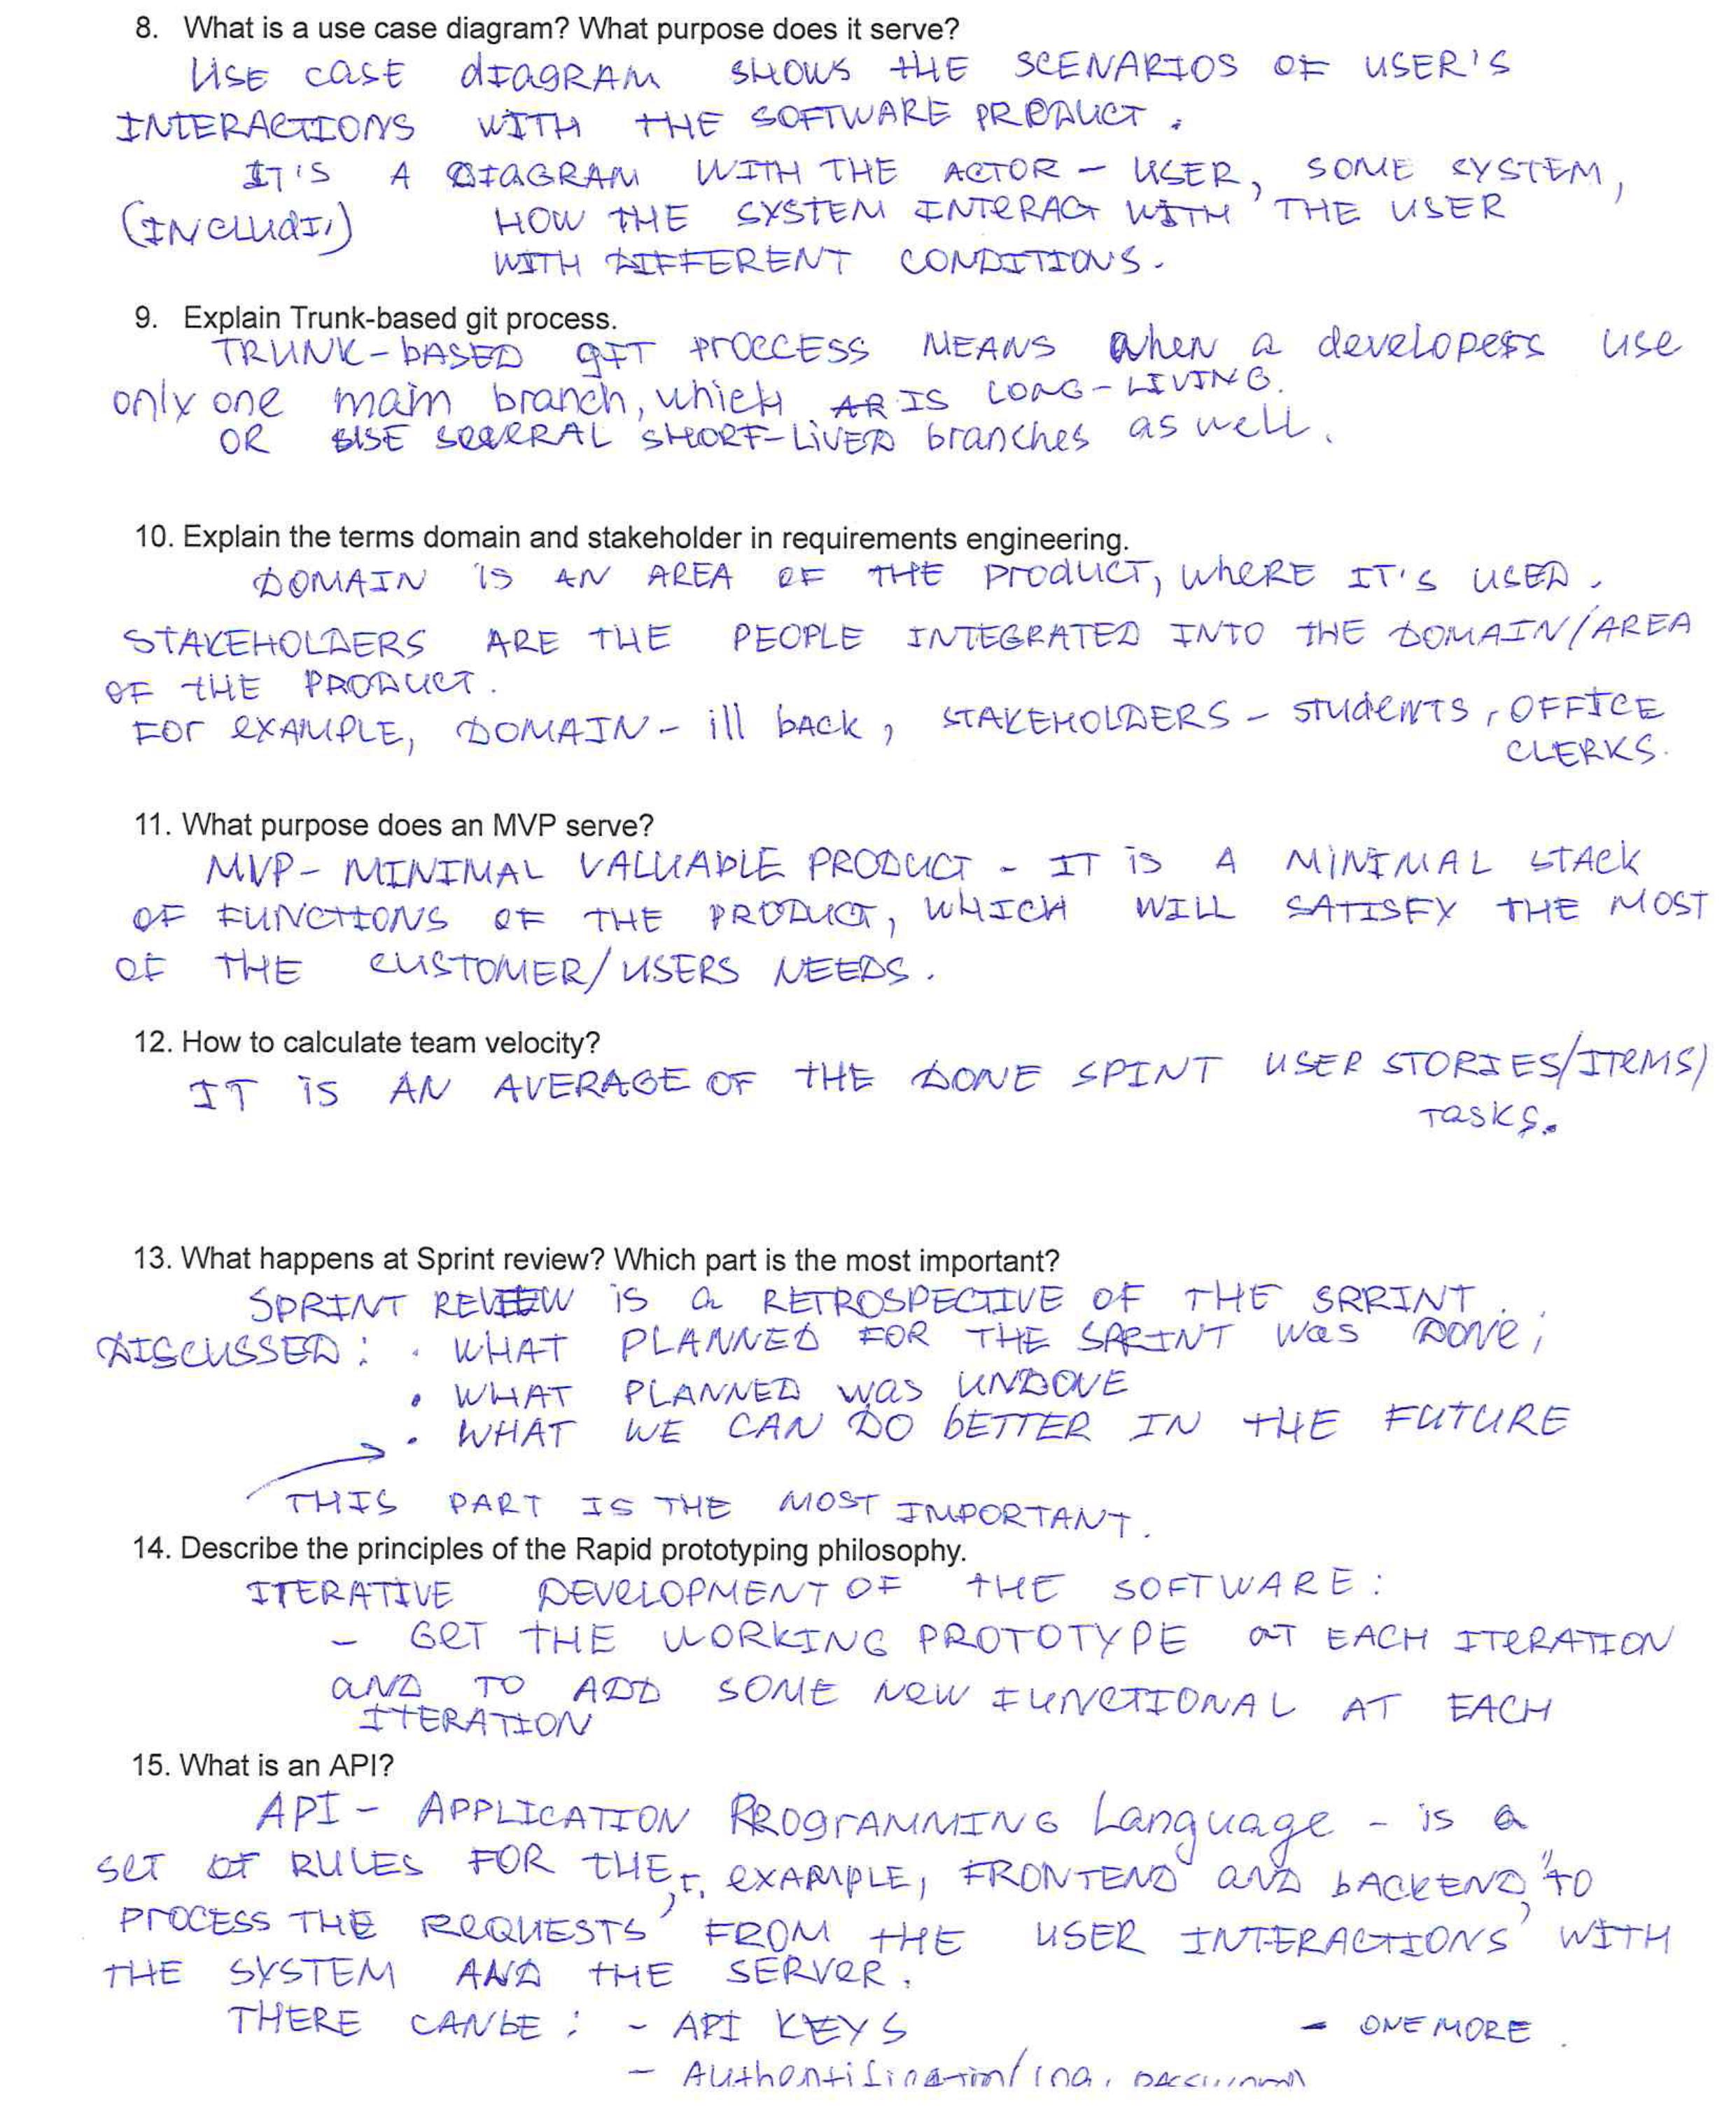 8. What is a use case diagram? What purpose does it serve?
USE CASE dIAGRAM SHOWS THE SCENARIOS OF USER'S
INTERACTIONS WITH THE SOFTWARE PRODUCT.
IT'S A DIAGRAM WITH THE ACTOR - USER, SOME SYSTEM,
(INCLUdI,) HOW THE SYSTEM INTERACT WITH THE USER
WITH DIFFERENT CONDITIONS.
9. Explain Trunk-based git process.
TRUNK-bASED gIT PROCCESS MEANS when a developers use
only one main branch, which IS LONG-LIVING.
OR USE SEVERAL SHORT-LIVED branches as well.
10. Explain the terms domain and stakeholder in requirements engineering.
DOMAIN IS AN AREA OF THE PRODUCT, WHERE IT'S USED.
STAKEHOLDERS ARE THE PEOPLE INTEGRATED INTO THE DOMAIN/AREA
OF THE PRODUCT.
FOR EXAMPLE, DOMAIN - ill back, STAKEHOLDERS - STUdENTS, OFFICE
CLERKS.
11. What purpose does an MVP serve?
MVP - MINIMAL VALUABLE PRODUCT - IT IS A MINIMAL STACK
OF FUNCTIONS OF THE PRODUCT, WHICH WILL SATISFY THE MOST
OF THE CUSTOMER/USERS NEEDS.
12. How to calculate team velocity?
IT IS AN AVERAGE OF THE DONE SPINT USER STORIES/ITEMS/
TASKS.
13. What happens at Sprint review? Which part is the most important?
SPRINT REVIEW IS a RETROSPECTIVE OF THE SPRINT.
DISCUSSED: • WHAT PLANNED FOR THE SPRINT was DONE;
• WHAT PLANNED was UNDONE
• WHAT WE CAN DO bETTER IN THE FUTURE
THIS PART IS THE MOST IMPORTANT.
14. Describe the principles of the Rapid prototyping philosophy.
ITERATIVE DEVELOPMENT OF THE SOFTWARE:
- GET THE WORKING PROTOTYPE aT EACH ITERATION
aND TO ADD SOME NEW FUNCTIONAL AT EACH
ITERATION
15. What is an API?
API - APPLICATION PROgrAMMING Language - is a
SET OF RULES FOR THE, F. EXAMPLE, FRONTEND aND bACKEND, TO
PROCESS THE REQUESTS, FROM THE USER INTERACTIONS, WITH
THE SYSTEM AND THE SERVER.
THERE CAN bE: - API KEYS - ONE MORE.
-